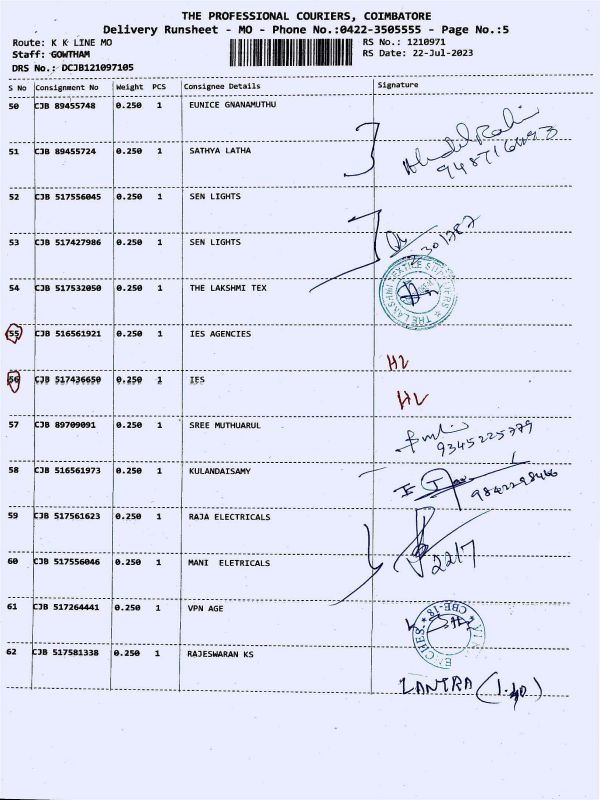 THE PROFESSIONAL COURIERS, COIMBATORE
Delivery Runsheet - MO - Phone No.:0422-3505555 - Page No.:5
Route: K K LINE MO RS No.: 1210971
Staff: GOWTHAM RS Date: 22-Jul-2023
DRS No.: DCJB121097105
S No Consignment No Weight PCS Consignee Details Signature
50 CJB 89455748 0.250 1 EUNICE GNANAMUTHU
51 CJB 89455724 0.250 1 SATHYA LATHA
52 CJB 517556045 0.250 1 SEN LIGHTS
53 CJB 517427986 0.250 1 SEN LIGHTS
54 CJB 517532050 0.250 1 THE LAKSHMI TEX
THE LAKSHMI TEXTILE SUPPLIERS
55 CJB 516561921 0.250 1 IES AGENCIES
HL
56 CJB 517436650 0.250 1 IES
HL
57 CJB 89709091 0.250 1 SREE MUTHUARUL
9345225379
58 CJB 516561973 0.250 1 KULANDAISAMY
9842298466
59 CJB 517561623 0.250 1 RAJA ELECTRICALS
60 CJB 517556046 0.250 1 MANI ELETRICALS
22/7
61 CJB 517264441 0.250 1 VPN AGE
CBE-18
62 CJB 517581338 0.250 1 RAJESWARAN KS
ZANTRA (1.40)